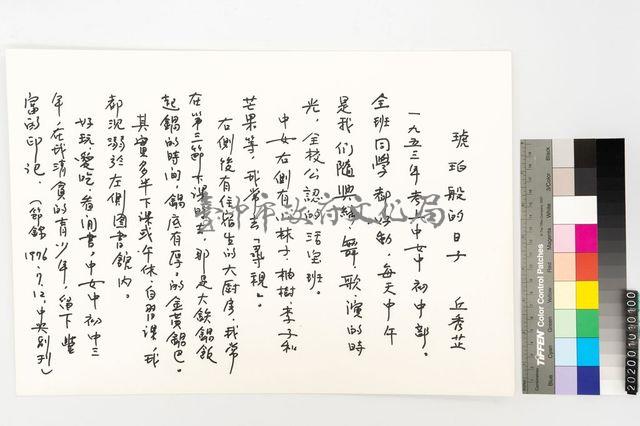 琥珀般的日子 丘秀芷
一九五三年考上中女中初中部。
全班同學都好動，每天中午
是我们隨興編、舞、歌、演的時
光，全校公認的活寶班。
中女右側有林子、柚樹、李子和
芒果等，我常去「尋親」。
右側後有住宿生的大廚房，我常
在第三節下課時去，那是大鉄鍋飯
起鍋的時間，鍋底有厚厚的金黃鍋巴。
其實多半下課或午休、自習課，我
都沉溺於左側圖書館内。
好玩、愛吃、看閒書，中女中初中三
年，在我清貧的青少年，留下豐
富的印记。（節錄1996.9.12.中央副刊）
臺中市政府文化局
TIFFEN Color Control Patches
Blue
Cyan
Green
Yellow
Red
Magenta
White
3/Color
Black
202001010100